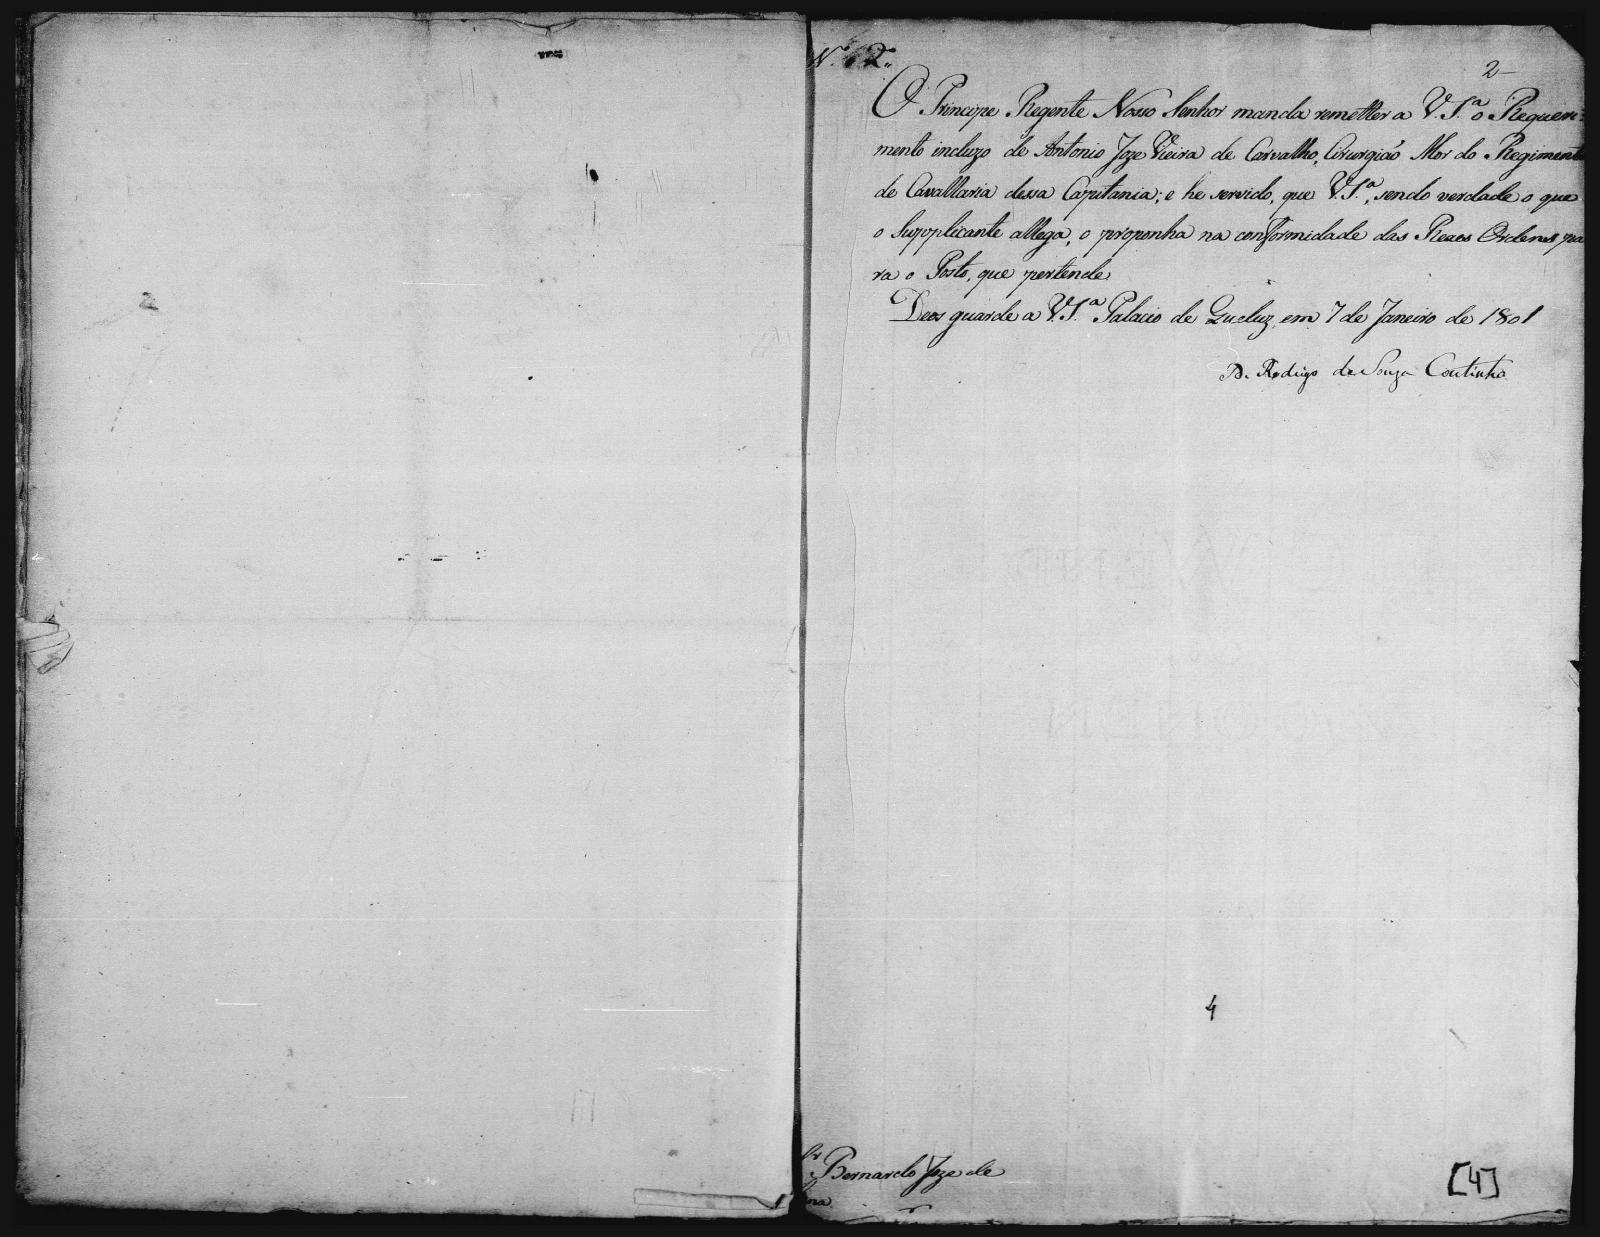 N.º 2.,,
2
O Principe Regente Nosso Senhor manda remetter a V. S.ª o Requeri=
mento incluzo de Antonio Joze Vieira de Carvalho, Cirurgiaõ Mor do Regimento
de Cavallaria dessa Capitania; e he servido, que V. S.ª, sendo verdade o que
o Supplicante allega, o proponha na conformidade das Reaes Ordens pa
ra o Posto, que pertende.
Deos guarde a V. S.ª Palacio de Queluz em 7 de Janeiro de 1801
D. Rodrigo de Souza Coutinho
4
Bernardo Joze de
[4]